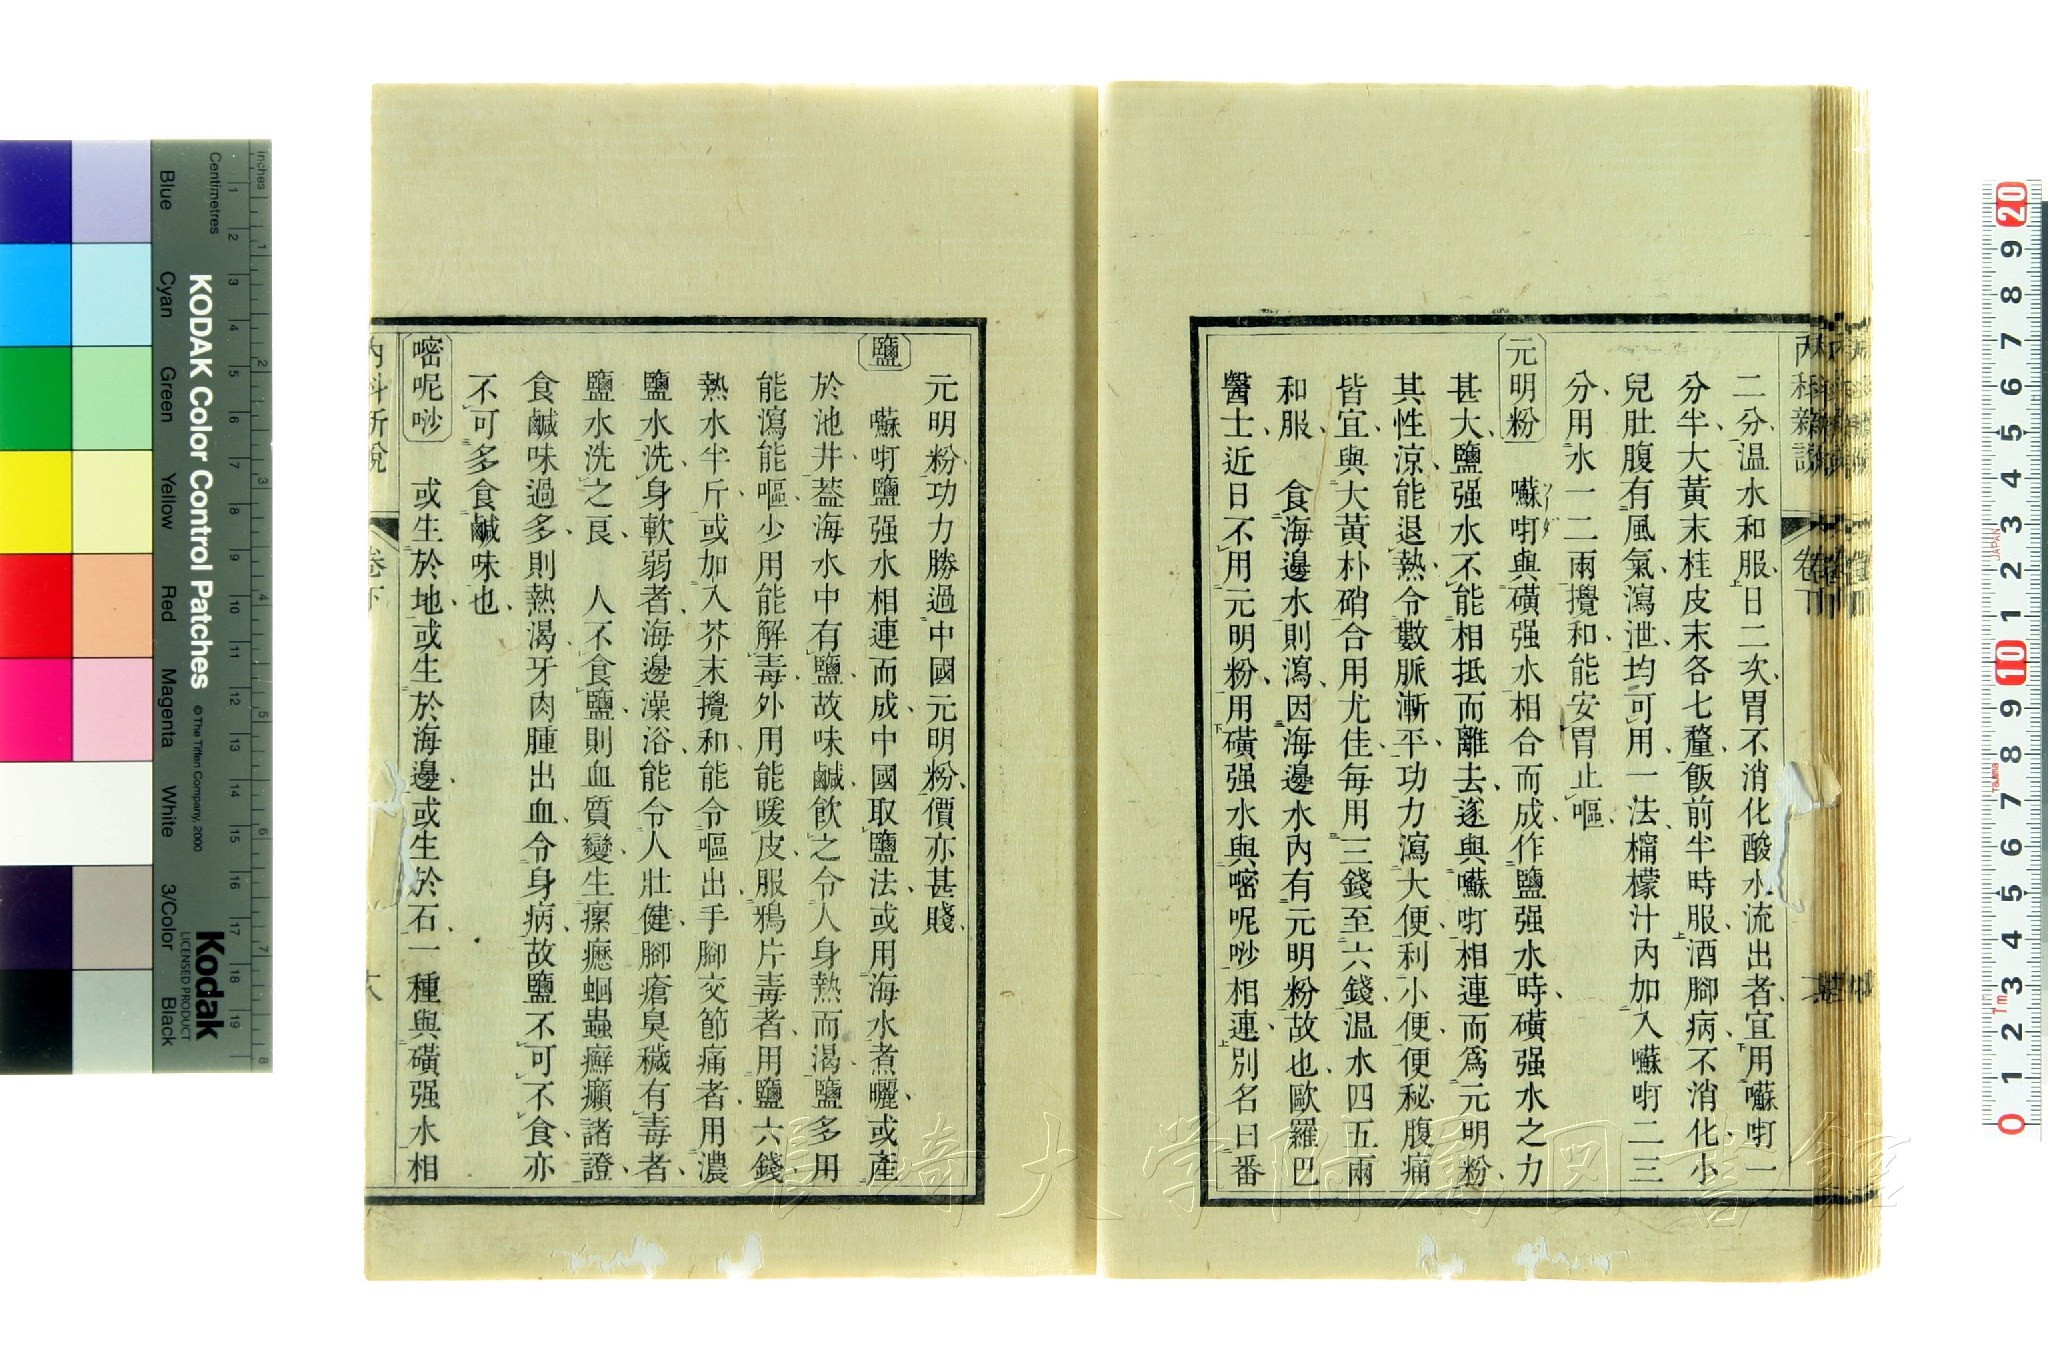 二分溫水和服日二次胃不消化酸水流出者宜用囌呀一
分半大黃末桂皮末各七釐飯前半時服酒腳病不消化小
兒肚腹有風氣瀉泄均可用一法檸檬汁內加入囌呀二三
分用水一二兩攪和能安胃止嘔
元明粉 囌呀與磺强水相合而成作鹽强水時磺强水之力
甚大鹽强水不能相抵而離去遂與囌呀相連而爲元明粉
其性涼能退熱令數脈漸平功力瀉大便利小便便秘腹痛
皆宜與大黃朴硝合用尤佳每用三錢至六錢溫水四五兩
和服 食海邊水則瀉因海邊水內有元明粉故也歐羅巴
醫士近日不用元明粉用磺强水與嘧呢唦相連別名曰番
元明粉功力勝過中國元明粉價亦甚賤
鹽 囌呀鹽强水相連而成中國取鹽法或用海水煮曬或產
於池井葢海水中有鹽故味鹹飲之令人身熱而渴鹽多用
能瀉能嘔少用能解毒外用能暖皮服鴉片毒者用鹽六錢
熱水半斤或加入芥末攪和能令嘔出手腳交節痛者用濃
鹽水洗身軟弱者海邊澡浴能令人壯健腳瘡臭穢有毒者
鹽水洗之良 人不食鹽則血質變生瘰癧蛔蟲癬癩諸證
食鹹味過多則熱渴牙肉腫出血令身病故鹽不可不食亦
不可多食鹹味也
嘧呢唦 或生於地或生於海邊或生於石一種與磺强水相
內科新說
卷下
內科新說 卷下
長崎大学附属図書館
KODAK Color Control Patches
© The Tiffen Company, 2000
Kodak
LICENSED PRODUCT
inches
Centimetres
Blue Cyan Green Yellow Red Magenta White 3/Color Black
1 2 3 4 5 6 7 8 9 10 11 12 13 14 15 16 17 18 19
1 2 3 4 5 6 7 8
20 9 8 7 6 5 4 3 2 1 10 9 8 7 6 5 4 3 2 1 0
JAPAN